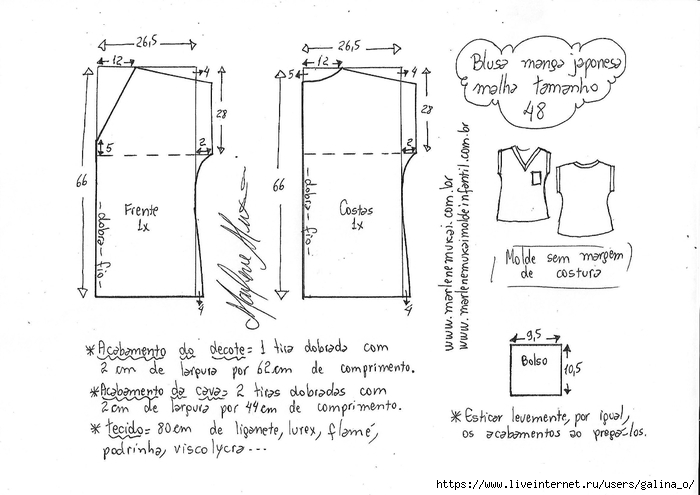 26,5
12
4
28
5
2
66
Frente
1x
-dobra-fio-
4
26,5
12
5
4
28
2
66
Costas
1x
-dobra-fio-
4
Marlene Mukai
Blusa manga japonesa
malha tamanho
48
www.marlenemukai.com.br
www.marlenemukaimoldeinfantil.com.br
Molde sem margem
de costura
9,5
Bolso
10,5
* Acabamento do decote = 1 tira dobrada com
2 cm de largura por 62 cm de comprimento.
* Acabamento da cava = 2 tiras dobradas com
2 cm de largura por 44 cm de comprimento.
* tecido = 80 cm de liganete, lurex, flamê,
podrinha, viscolycra...
* Esticar levemente, por igual,
os acabamentos ao pregá-los.
https://www.liveinternet.ru/users/galina_o/